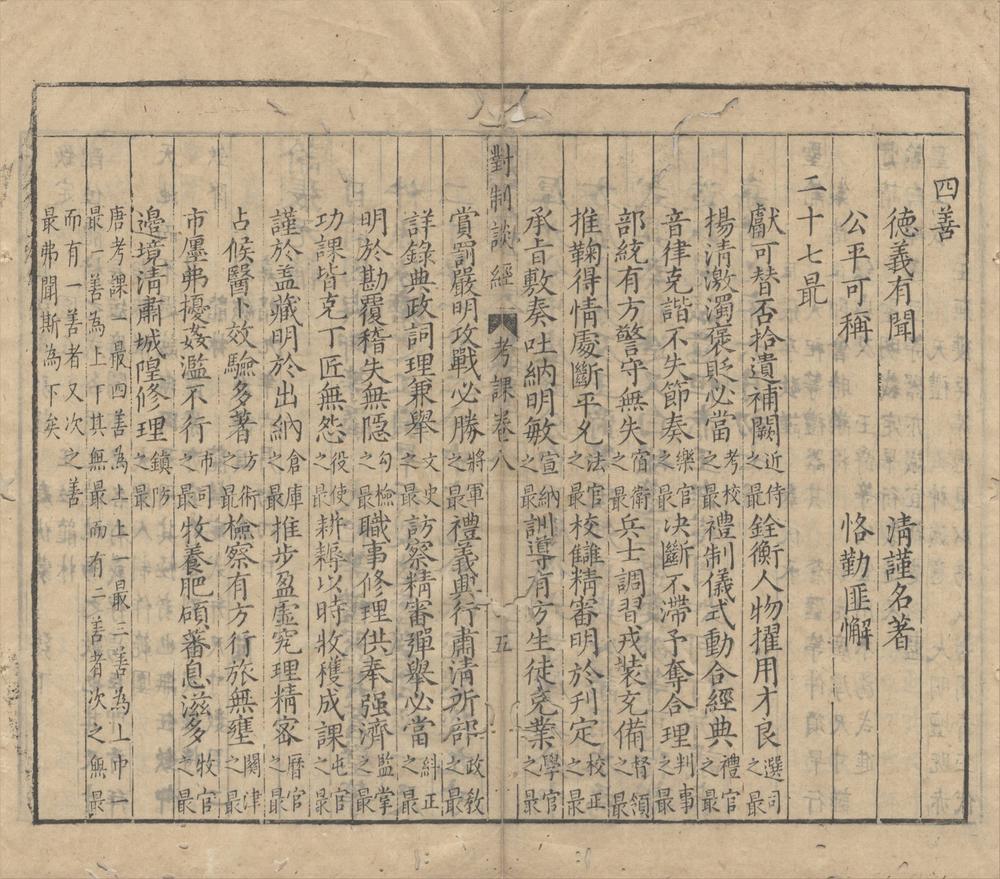 四善
德義有聞　清謹名著
公平可稱　恪勤匪懈
二十七最
獻可替否拾遺補闕近侍之最銓衡人物擢用才良選司之最
揚清激濁褒貶必當考校之最禮制儀式動合經典禮官之最
音律克諧不失節奏樂官之最决斷不滯予奪合理判事之最
部統有方警守無失宿衛之最兵士調習戎裝充備督領之最
推鞠得情處斷平允法官之最校讎精審明於刋定校正之最
承㫖敷奏吐納明敏宣納之最訓導有方生徒克業學官之最
對制談經　考課卷八　五
賞罰嚴明攻戰必勝將軍之最禮義興行肅清所部政敎之最
詳錄典政詞理兼舉文史之最訪察精審彈舉必當糾正之最
明於勘覆稽失無隱勾檢之最職事修理供奉强濟監掌之最
功課皆克丁匠無怨役使之最耕耨以時收穫成課屯官之最
謹於盖藏明於出納倉庫之最推步盈虛究理精密曆官之最
占候醫卜效驗多著方術之最檢察有方行旅無壅關津之最
市廛弗擾姦濫不行市司之最牧養肥碩蕃息滋多牧官之最
邉境清肅城隍修理鎮防之最
唐考課一最四善為上上一最三善為上中一
最二善為上下其無最而有二善者次之無最
而有一善者又次之善
最弗聞斯為下矣